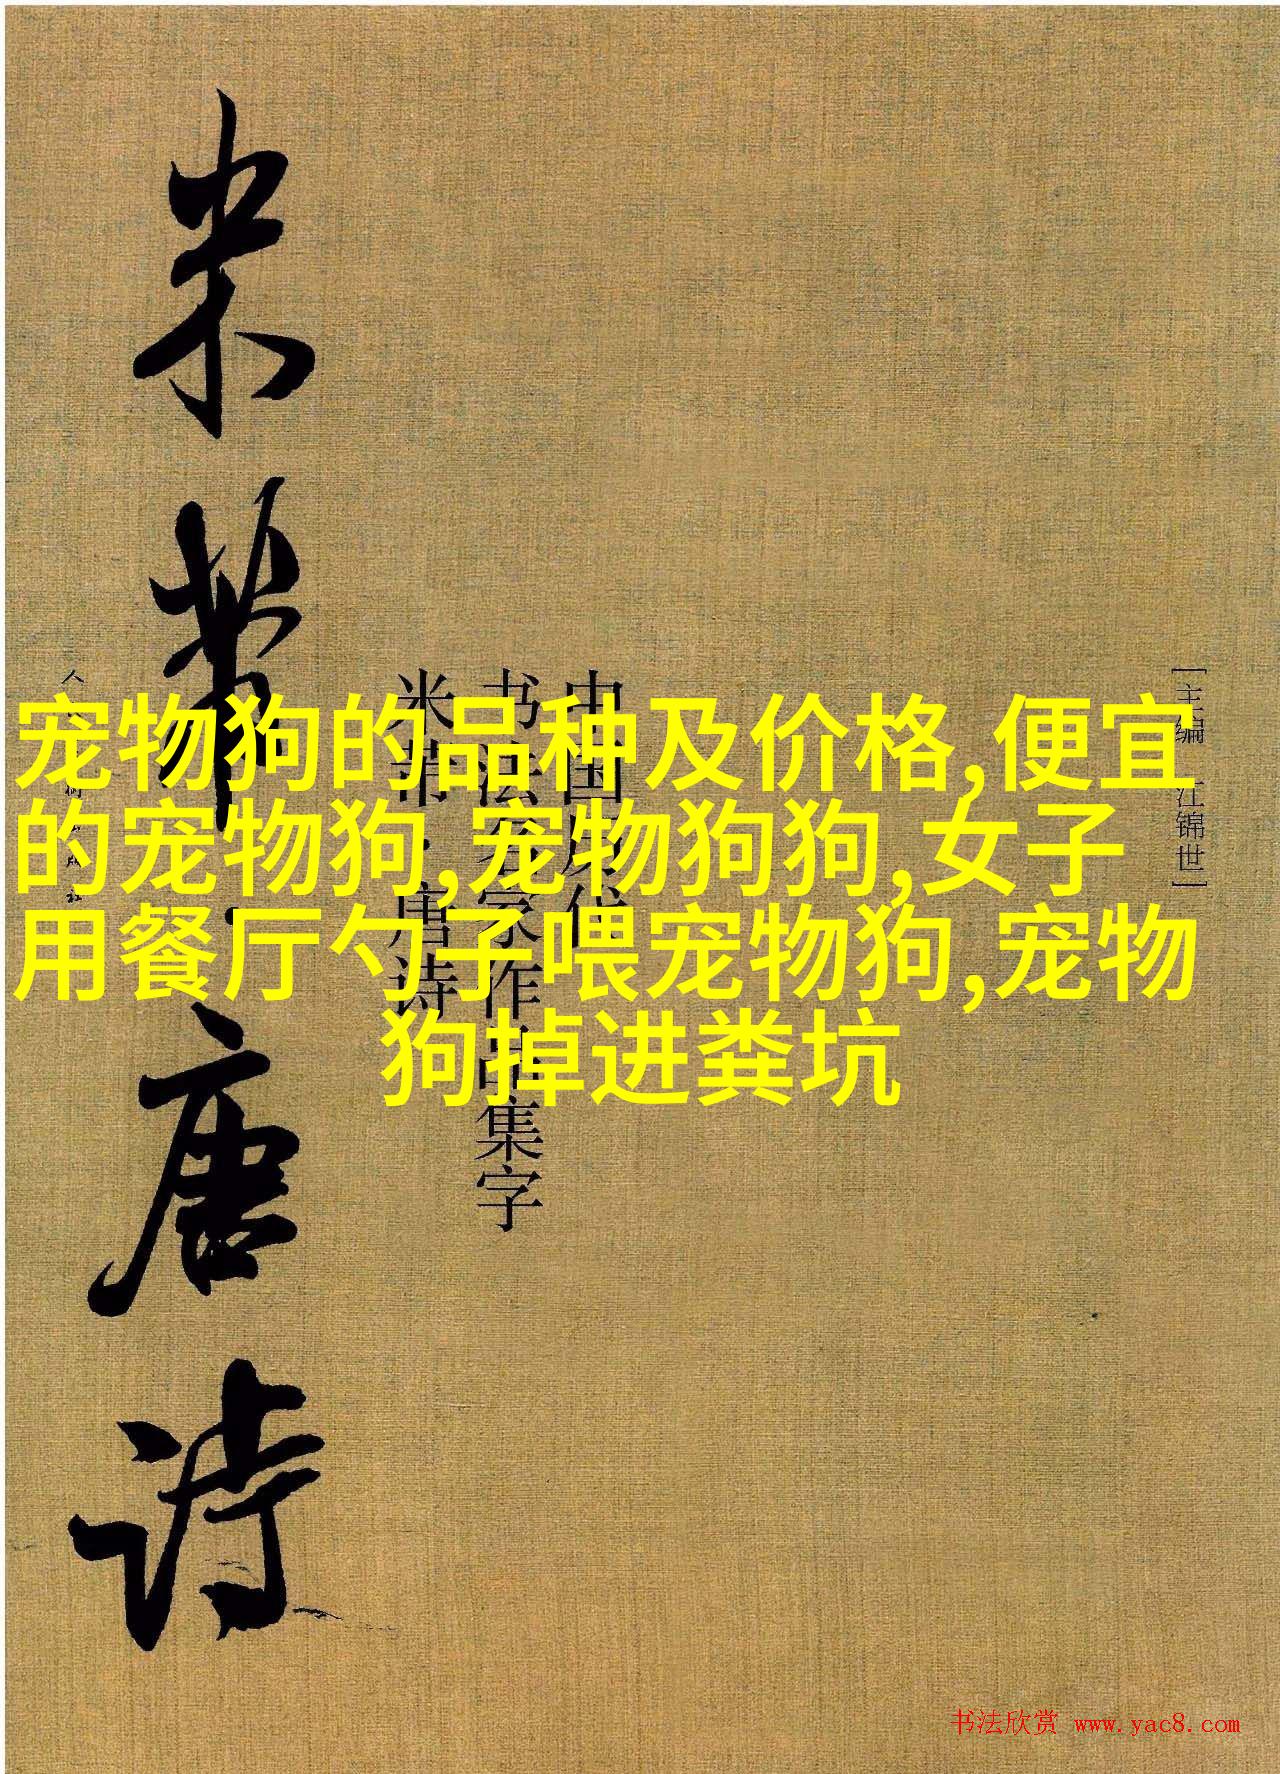 米芾·唐诗
中国历代
书法名家作品集字
米芾·唐诗
[主编 江锦世]
宠物狗的品种及价格,便宜
的宠物狗,宠物狗狗,女子
用餐厅勺子喂宠物狗,宠物
狗掉进粪坑
书法欣赏 www.yac8.com